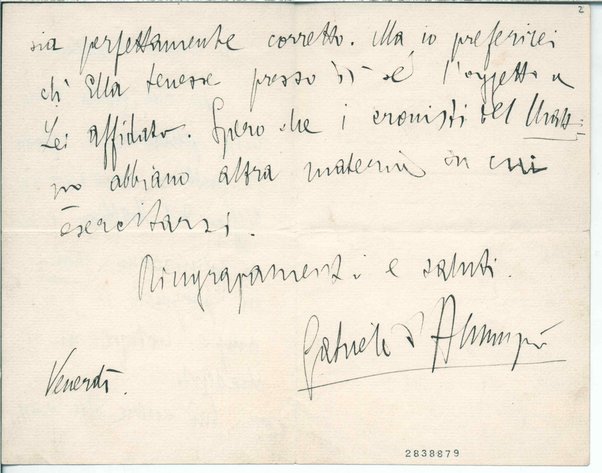 2
sia perfettamente corretto. Ma io preferirei
ch'Ella tenesse presso di sé l'oggetto a
Lei affidato. Spero che i cronisti del
no abbiano altra materia in cui
esercitarsi.
Ringraziamenti e saluti.
Gabriele d'Annunzio
Venerdì.
2838879